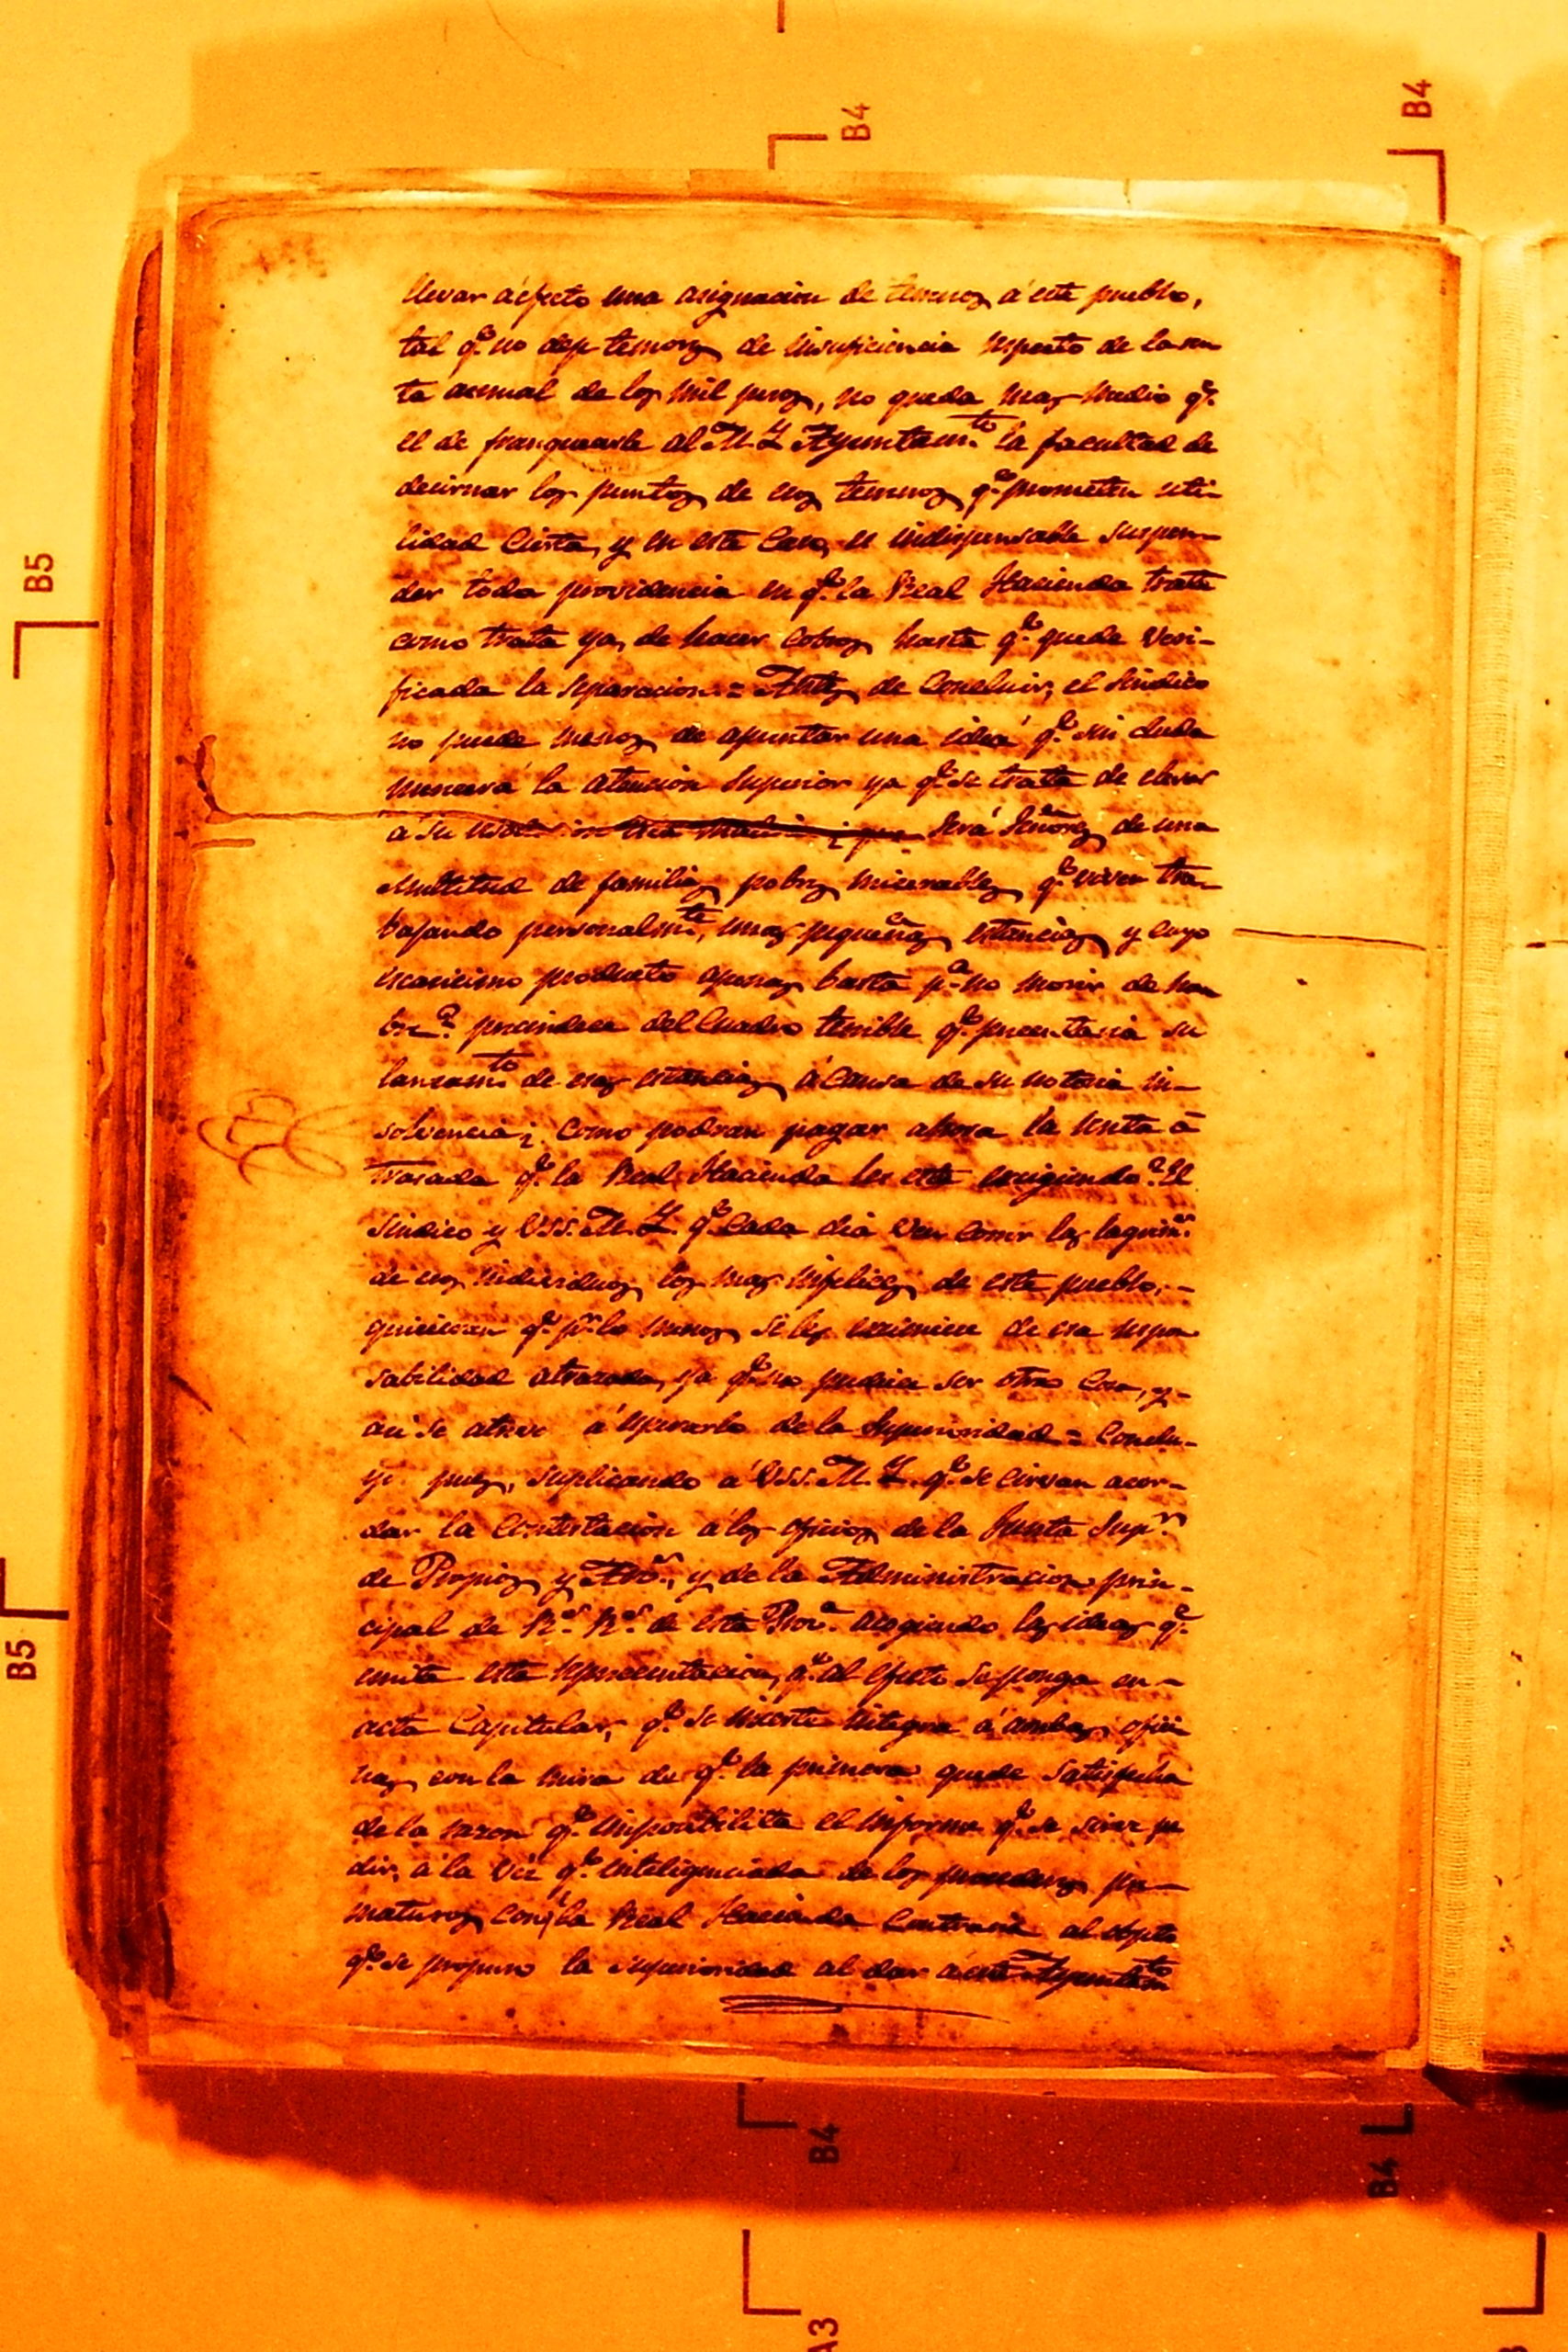 B4
B4
llevar áefecto una asignacion de terrenos á este pueblo,
tal q.e no deje temores de insuficiencia respecto de la ren
ta annual de los mil pesos, no queda mas medio q.e
el de franquearle al M. Y. Ayuntam.to la facultad de
decirnar los puntos de esos terrenos q.e prometen uti-
lidad cierta, y en este caso, es indispensable suspen-
der toda providencia en q.e la Real Hacienda trate
como trata ya, de hacer cobros hasta q.e quede veri-
ficada la separacion = Antes de concluir, el sindico
no puede menos de apuntar una idea q.e sin duda
merecerá la atencion Superior ya q.e se trata de elevar
á su resolucion esta materia ¿que Será Señores de una
multitud de familias pobres miserables q.e viven tra-
bajando personalm.te, unas pequeñas estancias y cuyo
escasicimo producto apenas basta p.a no morir de ham
bre? precindese del cuadro terrible q.e presentaria su
lanzam.to de esas estancias á causa de su notoria in-
solvencia ¿como podran pagar ahora la renta a
trasada q.e la Real Hacienda les está exsigiendo? El
sindico y VSS. M. Y. q.e cada dia ven correr las lagrim.s
de esos individuos los mas infelices de este pueblo,-
quisieran q.e p.r lo menos se les exsimiese de esa respon
sabilidad atrazada, ya q.e no pudiese ser otra cosa, y-
asi se atreve á esperarlo de la Superioridad = Conclu-
yo pues, suplicando á VSS. M. Y. q.e se cirvan acor-
dar la contestacion á los oficios de la Junta Sup.or
de Propios y Arb.s, y de la Administracion prin-
cipal de R.s R.s de esta Prov.a acogiendo las ideas q.e
emite esta representacion, q.e al efecto se ponga en-
acta Capitular, q.e se incerte integra á ambas ofici
nas con la mira de q.e la primera quede satisfecha
de la razon q.e imposibilita el informe q.e se sirve pe
dir, á la vez q.e inteligenciada de los procederes pre-
maturos con q.e la Real Hacienda contraria al objeto
q.e se propuso la superioridad al dar á este Ayuntam.to
B5
B5
B4
B4
A3